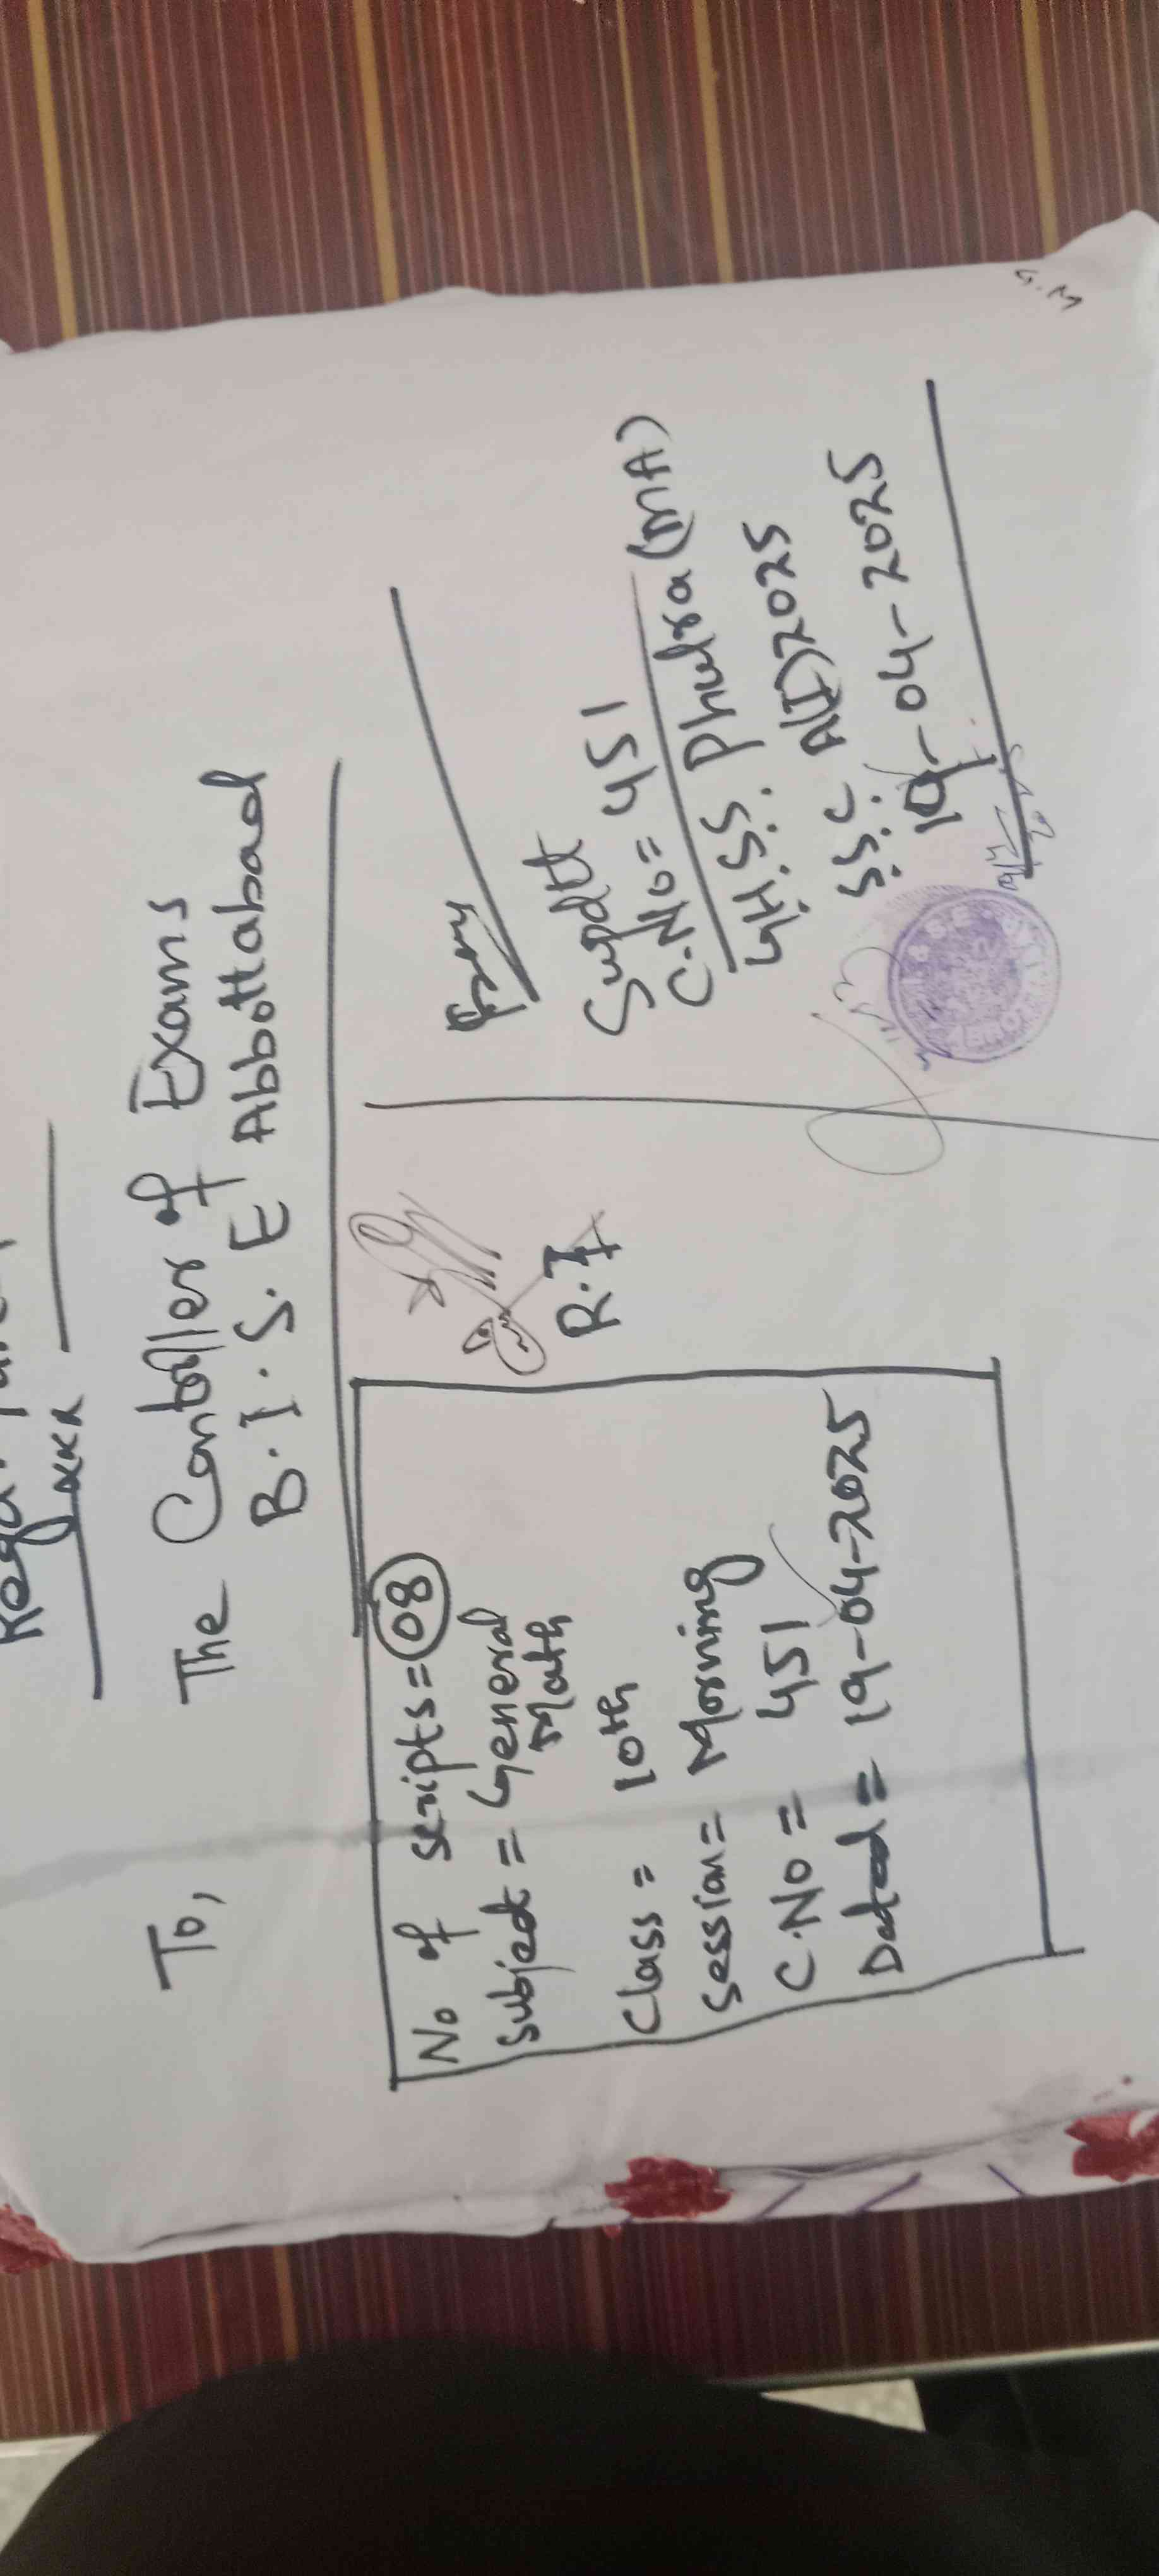 To,
The Contoller of Exams
B.I.S.E Abbottabad
No of scripts = 08
Subject = General
Math
Class = 10th
Session = Morning
C.No = 451
Dated = 19-04-2025
R.I
From
Supdtt
C.No = 451
GHSS Phulra (MA)
SSC A(I) 2025
19-04-2025
G.M